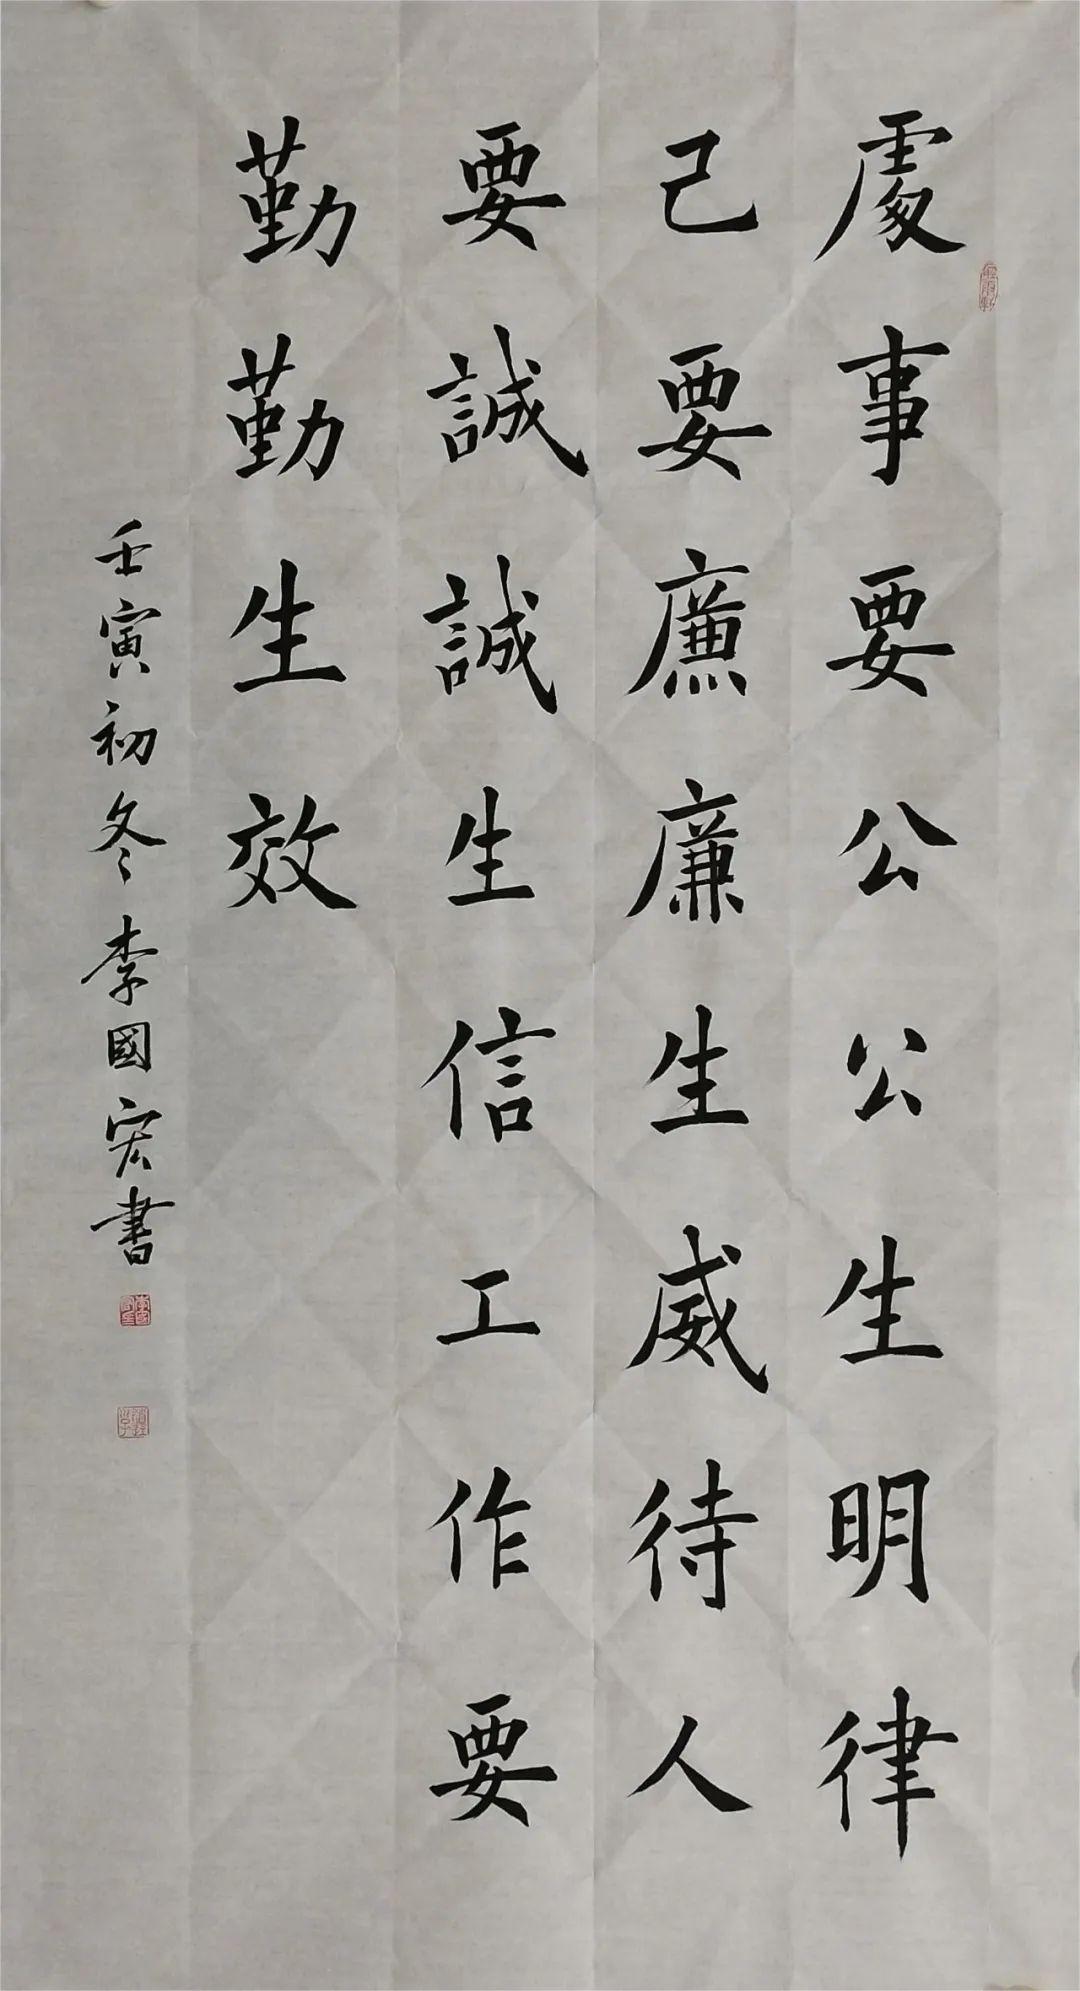 處事要公公生明律
己要廉廉生威待人
要誠誠生信工作要
勤勤生效
壬寅初冬李國宏書